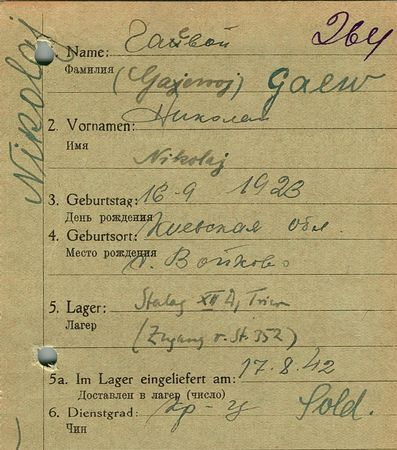 Nikolaj
264
1. Name: Гайвой
Фамилия
(Gajewoj) Gaew
2. Vornamen: Николай
Имя
Nikolaj
3. Geburtstag: 16-9 1923
День рождения
4. Geburtsort: Киевская обл.
Место рождения
Войково
5. Lager: Stalag XII D, Trier
Лагер
(Zugang v. St. 352)
5a. Im Lager eingeliefert am: 17.8.42
Доставлен в лагер (число)
6. Dienstgrad: кр-ц Sold.
Чин